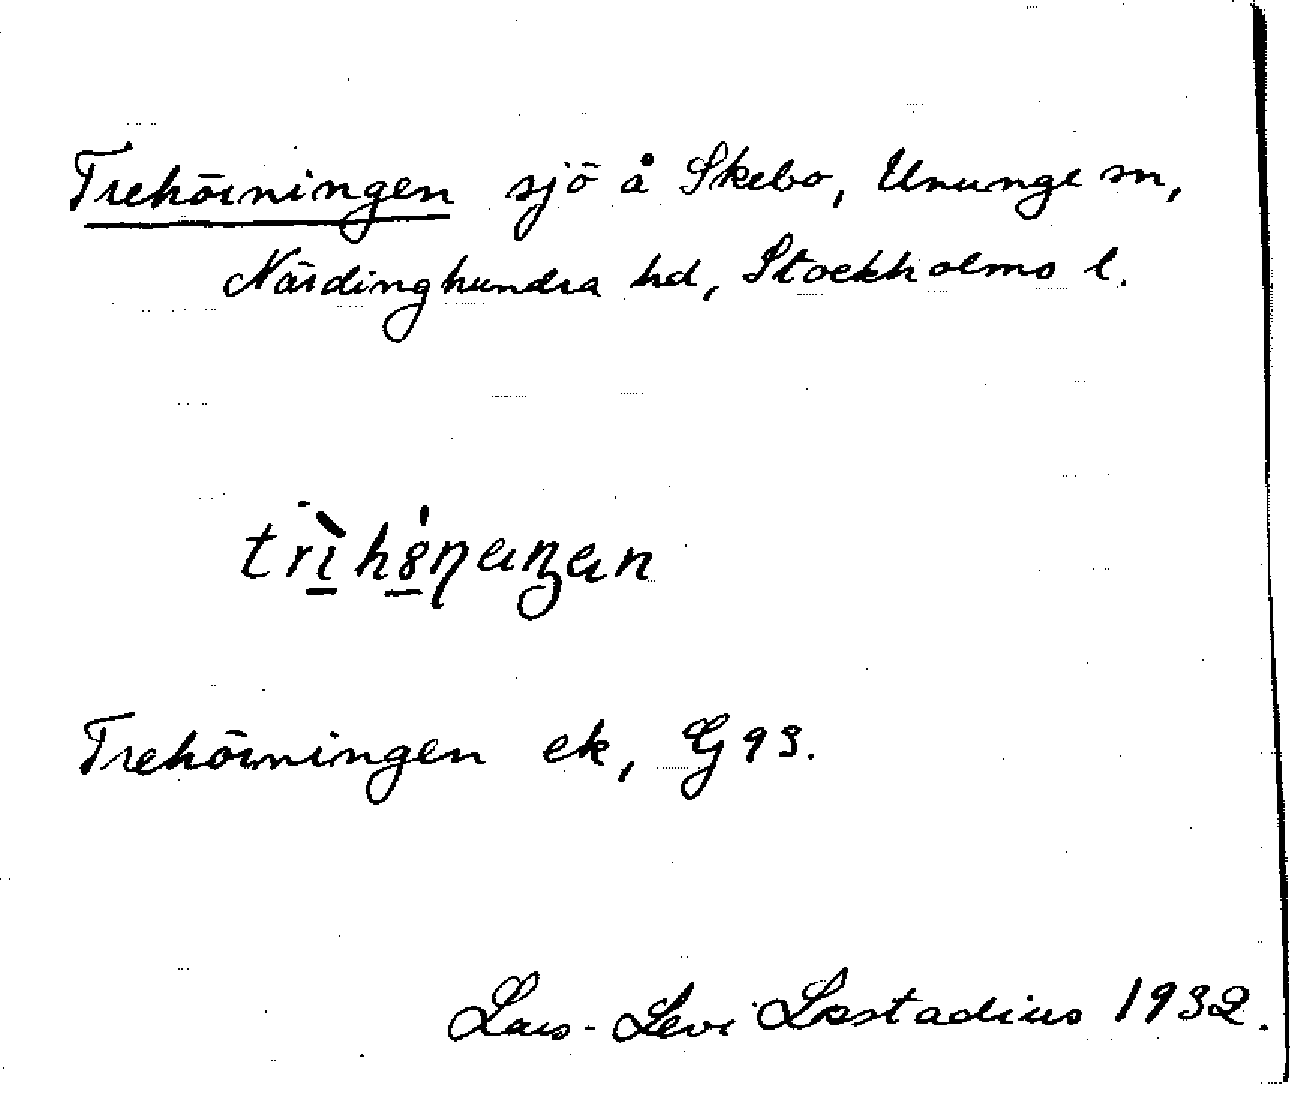 Trehörningen sjö å Skebo, Ununge sn,
Närdinghundra hd, Stockholms l.
trìhöŋaŋan
Trehörningen ek, G 93.
Lars-Levi Læstadius 1932.